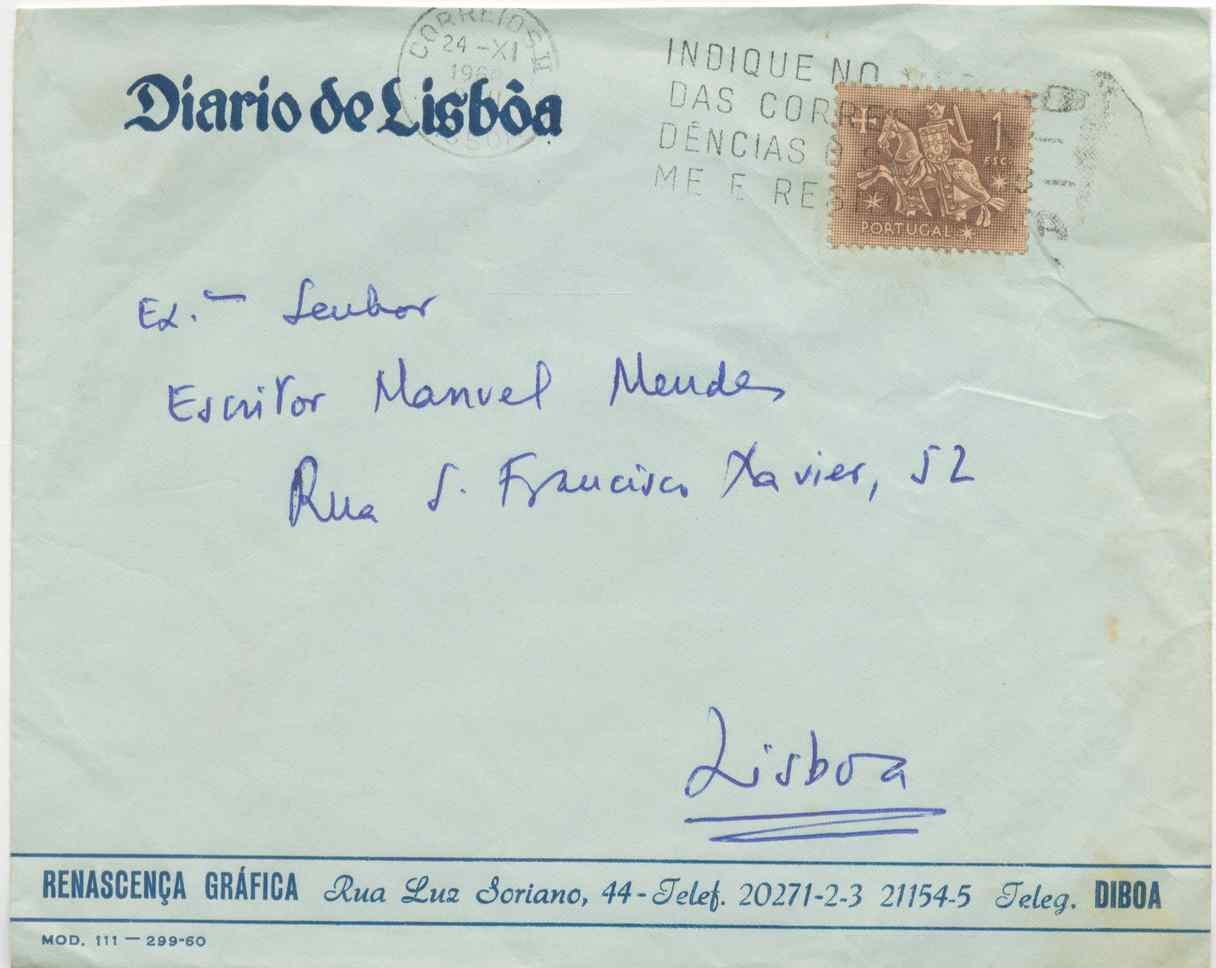 CORREIOS
24 - XI
Diario de Lisbôa
INDIQUE NO
DAS CORRES
DÊNCIAS
ME E RES
1
ESC.
PORTUGAL
Ex.mo Senhor
Escritor Manuel Mendes
Rua S. Francisco Xavier, 52
Lisboa
RENASCENÇA GRÁFICA Rua Luz Soriano, 44 - Telef. 20271-2-3 21154-5 Teleg. DIBOA
MOD. 111 — 299-60